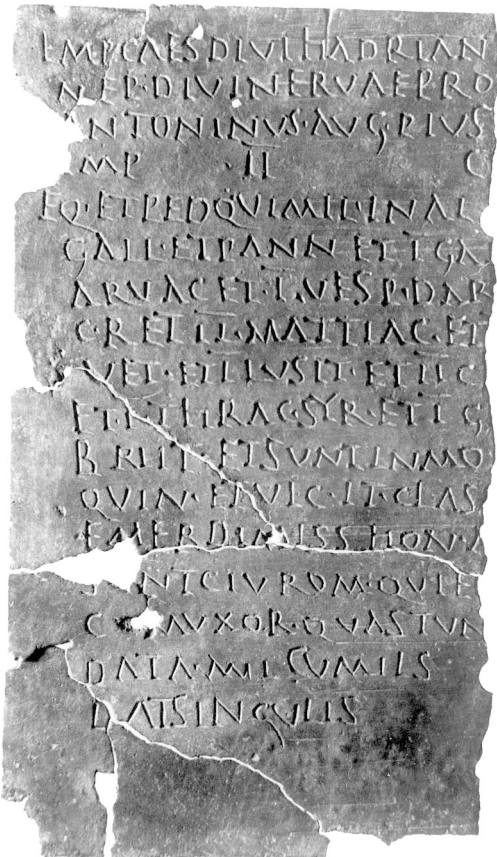 IMP CAES DIVI HADRIAN
NEP·DIVI NERVAE PRO
NTONINVS·AVG·PIVS
MP · II C
EQ·ET PED QVI MIL·IN AL
GALL·ET PANN ET I GA
ARVAC ET·I·VESP·DAR
C·R ET II·MATTIAC·ET
VET·ET I LVSIT·ET II C
ET·I THRAC·SYR·ET I G
ET SVNT IN MO
QVIN·ET VIC·IT·CLAS
EMER DIMISS HON·
NT CIV ROM·QVI E
VXOR·QVAS TVN
DATA· CVM IIS
DAT SINGVLIS